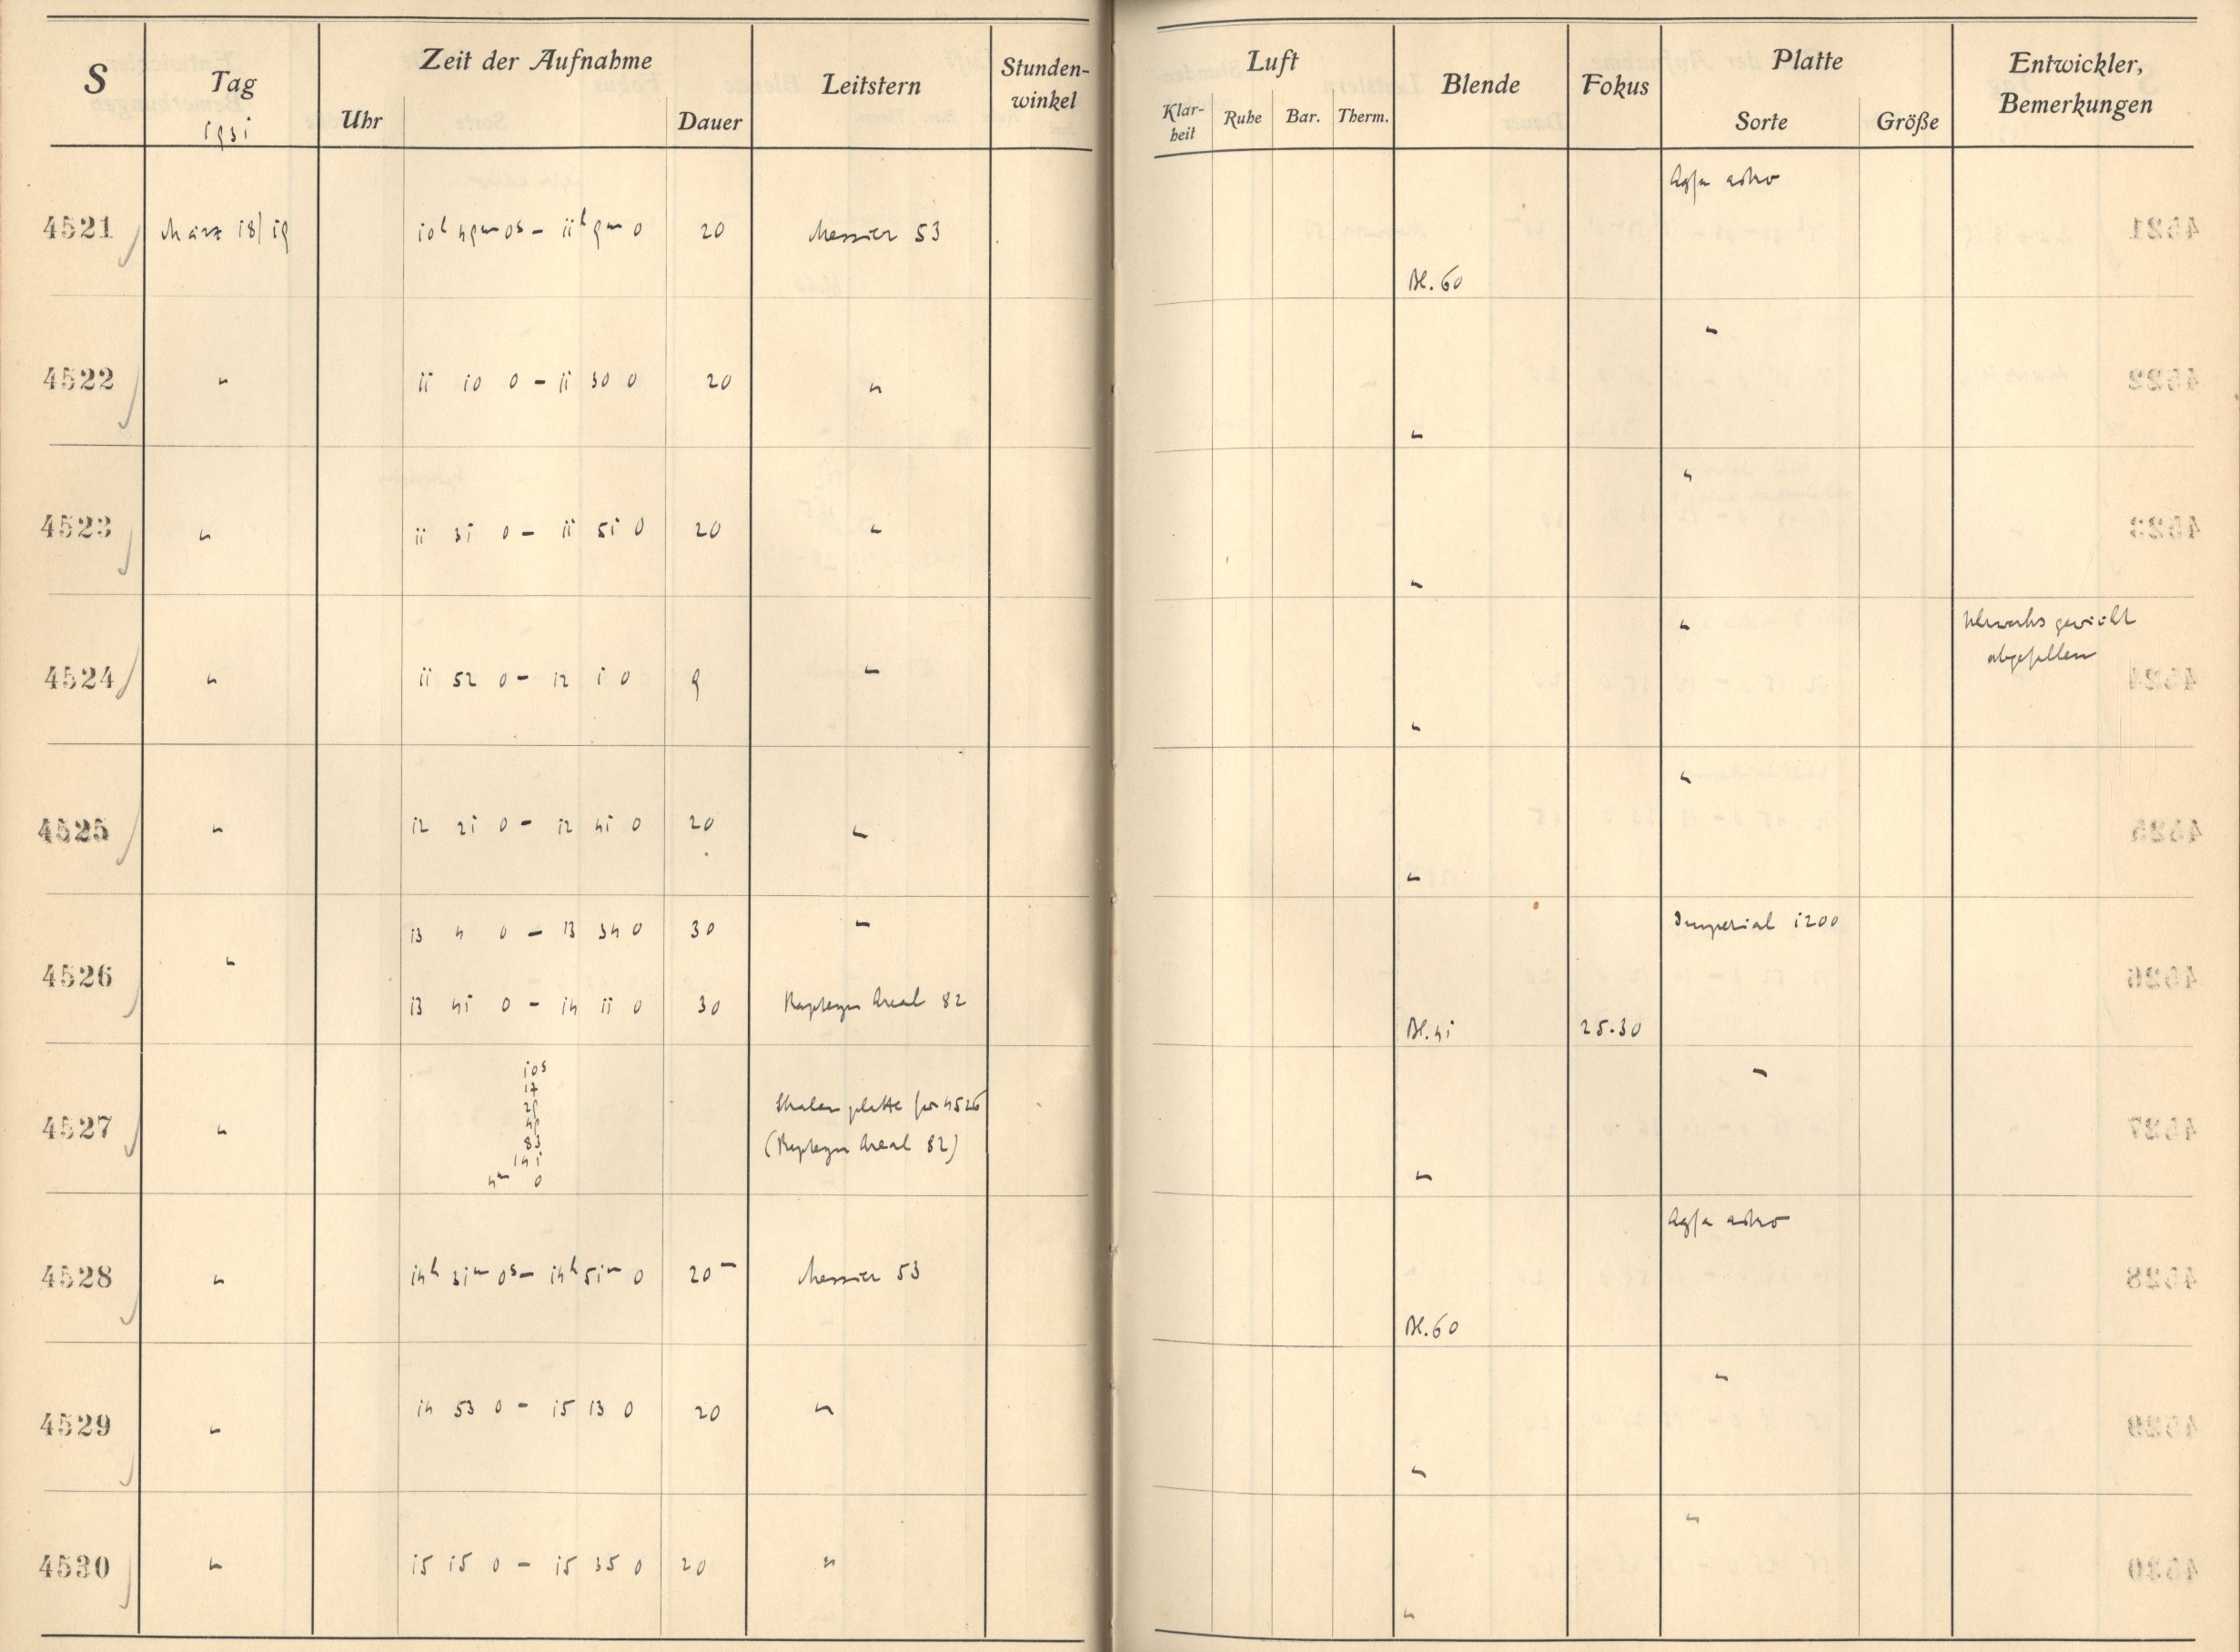 S Tag Zeit der Aufnahme Leitstern Stunden-winkel Luft Blende Fokus Platte Entwickler, Bemerkungen
1931 Uhr Dauer Klar-heit Ruhe Bar. Therm. Sorte Größe
Agfa astro
4521 März 18/19 10h 49m 0s – 11h 9m 0 20 Messier 53
Bl. 60
"
4522 " 11 10 0 – 11 30 0 20 "
"
"
4523 " 11 31 0 – 11 51 0 20 "
"
" Uhrwerksgewicht
abgefallen
4524 " 11 52 0 – 12 1 0 9 "
"
"
4525 " 12 21 0 – 12 41 0 20 "
"
13 4 0 – 13 34 0 30 " Imperial 1200
4526 "
13 41 0 – 14 11 0 30 Kapteyn Areal 82
Bl. 41 25.30
10s "
17
29
49
Skalenplatte für 4526
4527 "
83
(Kapteyn Areal 82)
141
4m 0 "
Agfa astro
4528 " 14h 31m 0s – 14h 51m 0 20m Messier 53
Bl. 60
"
4529 " 14 53 0 – 15 13 0 20 "
"
"
4530 " 15 15 0 – 15 35 0 20 "
"